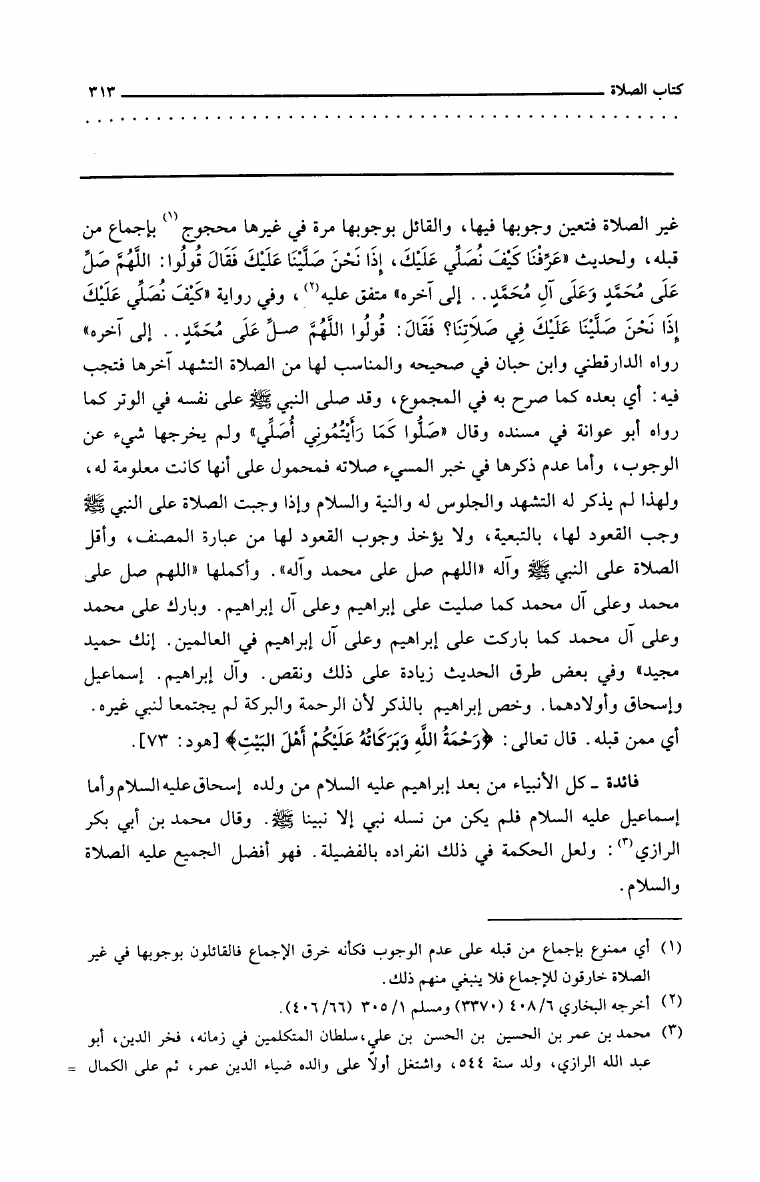 كتاب الصلاة ــــــــ ٣١٣
غير الصلاة فتعين وجوبها فيها، والقائل بوجوبها مرة في غيرها محجوج(١) بإجماع من
قبله، ولحديث «عَرَفْنَا كَيْفَ نُصَلِّي عَلَيْكَ، إِذَا نَحْنُ صَلَّيْنَا عَلَيْكَ فَقَالَ قُولُوا: اللَّهُمَّ صَلِّ
عَلَى مُحَمَّدٍ وَعَلَى آلِ مُحَمَّدٍ.. إلى آخره» متفق عليه(٢)، وفي رواية «كَيْفَ نُصَلِّي عَلَيْكَ
إِذَا نَحْنُ صَلَّيْنَا عَلَيْكَ فِي صَلَاتِنَا؟ فَقَالَ: قُولُوا اللَّهُمَّ صلِّ عَلَى مُحَمَّدٍ.. إلى آخره»
رواه الدارقطني وابن حبان في صحيحه والمناسب لها من الصلاة التشهد آخرها فتجب
فيه: أي بعده كما صرح به في المجموع، وقد صلى النبي ﷺ على نفسه في الوتر كما
رواه أبو عوانة في مسنده وقال «صَلُّوا كَمَا رَأَيْتُمُونِي أُصَلِّي» ولم يخرجها شيء عن
الوجوب، وأما عدم ذكرها في خبر المسيء صلاته فمحمول على أنها كانت معلومة له،
ولهذا لم يذكر له التشهد والجلوس له والنية والسلام وإذا وجبت الصلاة على النبي ﷺ
وجب القعود لها، بالتبعية، ولا يؤخذ وجوب القعود لها من عبارة المصنف، وأقل
الصلاة على النبي ﷺ وآله «اللهم صل على محمد وآله». وأكملها «اللهم صل على
محمد وعلى آل محمد كما صليت على إبراهيم وعلى آل إبراهيم. وبارك على محمد
وعلى آل محمد كما باركت على إبراهيم وعلى آل إبراهيم في العالمين. إنك حميد
مجيد» وفي بعض طرق الحديث زيادة على ذلك ونقص. وآل إبراهيم. إسماعيل
وإسحاق وأولادهما. وخص إبراهيم بالذكر لأن الرحمة والبركة لم يجتمعا لنبي غيره.
أي ممن قبله. قال تعالى: ﴿رَحْمَةُ اللَّهِ وَبَرَكَاتُهُ عَلَيْكُمْ أَهْلَ البَيْتِ﴾ [هود: ٧٣].
فائدة ـ كل الأنبياء من بعد إبراهيم عليه السلام من ولده إسحاق عليه السلام وأما
إسماعيل عليه السلام فلم يكن من نسله نبي إلا نبينا ﷺ. وقال محمد بن أبي بكر
الرازي(٣): ولعل الحكمة في ذلك انفراده بالفضيلة. فهو أفضل الجميع عليه الصلاة
والسلام.
(١) أي ممنوع بإجماع من قبله على عدم الوجوب فكأنه خرق الإجماع فالقائلون بوجوبها في غير
الصلاة خارقون للإجماع فلا ينبغي منهم ذلك.
(٢) أخرجه البخاري ٦/ ٤٠٨ (٣٣٧٠) ومسلم ١/ ٣٠٥ (٤٠٦/٦٦).
(٣) محمد بن عمر بن الحسين بن الحسن بن علي، سلطان المتكلمين في زمانه، فخر الدين، أبو
عبد الله الرازي، ولد سنة ٥٤٤، واشتغل أولاً على والده ضياء الدين عمر، ثم على الكمال =